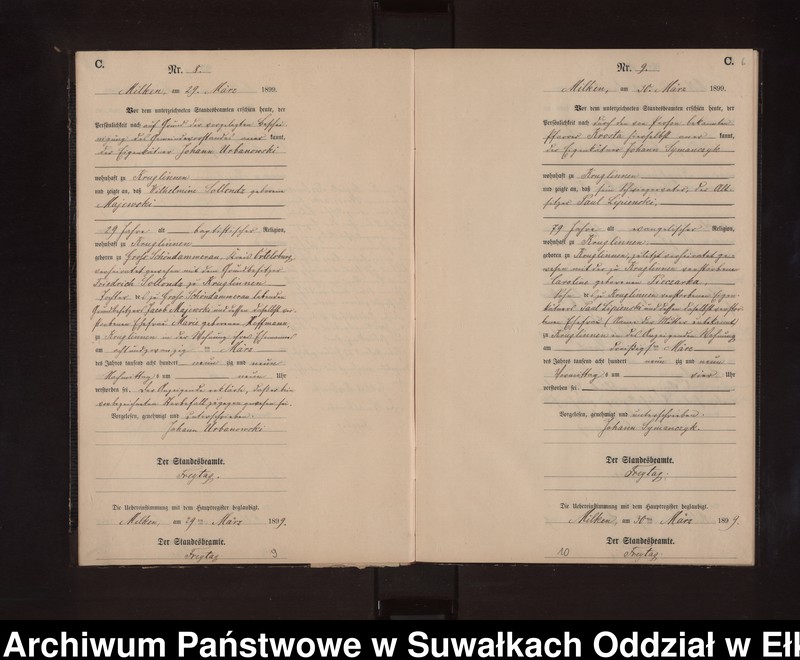 C.
Nr. 8.
Milken, am 29. März 1899.
Vor dem unterzeichneten Standesbeamten erschien heute, der
Persönlichkeit nach auf Grund der vorgelegten Beschei-
nigung des Gemeindevorstandes kannt,
der Eigenkätner Johann Urbanowski
wohnhaft zu Ronglinnen
und zeigte an, daß Wilhelmine Sollonds geborene
Majewski
29 Jahre alt baptistischer Religion,
wohnhaft zu Ronglinnen
geboren zu Groß Schöndammerau, Kreis Ortelsburg,
verheirathet gewesen mit dem Grundbesitzer
Friedrich Sollonds zu Ronglinnen
Tochter des zu Groß Schöndammerau lebenden
Grundbesitzers Jacob Majewski und dessen daselbst ver-
storbenen Ehefrau Marie geborenen Hoffmann,
zu Ronglinnen in der Wohnung ihres Ehemannes
am achtundzwanzigsten März
des Jahres tausend acht hundert neun zig und neun
Nachmittags um neun Uhr
verstorben sei. Der Anzeigende erklärte, daß er bei
vorbezeichnetem Sterbefall zugegen gewesen sei.
Vorgelesen, genehmigt und unterschrieben.
Johann Urbanowski
Der Standesbeamte.
Freytag.
Die Uebereinstimmung mit dem Hauptregister beglaubigt.
Milken, am 29ten März 1899.
Der Standesbeamte.
Freytag
9
C. 6
Nr. 9.
Milken, am 30. März 1899.
Vor dem unterzeichneten Standesbeamten erschien heute, der
Persönlichkeit nach durch den von Person bekannten
Pfarrer hierselbst kannt,
der Eigenkätner Johann Symanczyk
wohnhaft zu Ronglinnen
und zeigte an, daß sein Schwiegervater, der Alt-
sitzer Paul Lipienski,
79 Jahre alt evangelischer Religion,
wohnhaft zu Ronglinnen
geboren zu Ronglinnen, zuletzt verheirathet ge-
wesen mit der zu Ronglinnen verstorbenen
Caroline geborenen
Sohn des zu Ronglinnen verstorbenen Eigen-
kätners Paul Lipienski und dessen daselbst verstor-
benen Ehefrau (Name der Mutter unbekannt)
zu Ronglinnen in des Anzeigenden Wohnung
am dreißigsten März
des Jahres tausend acht hundert neun zig und neun
Vormittags um vier Uhr
verstorben sei.
Vorgelesen, genehmigt und unterschrieben.
Johann Symanczyk.
Der Standesbeamte.
Freytag.
Die Uebereinstimmung mit dem Hauptregister beglaubigt.
Milken, am 30ten März 1899.
Der Standesbeamte.
Freytag.
10
Archiwum Państwowe w Suwałkach Oddział w Ełk